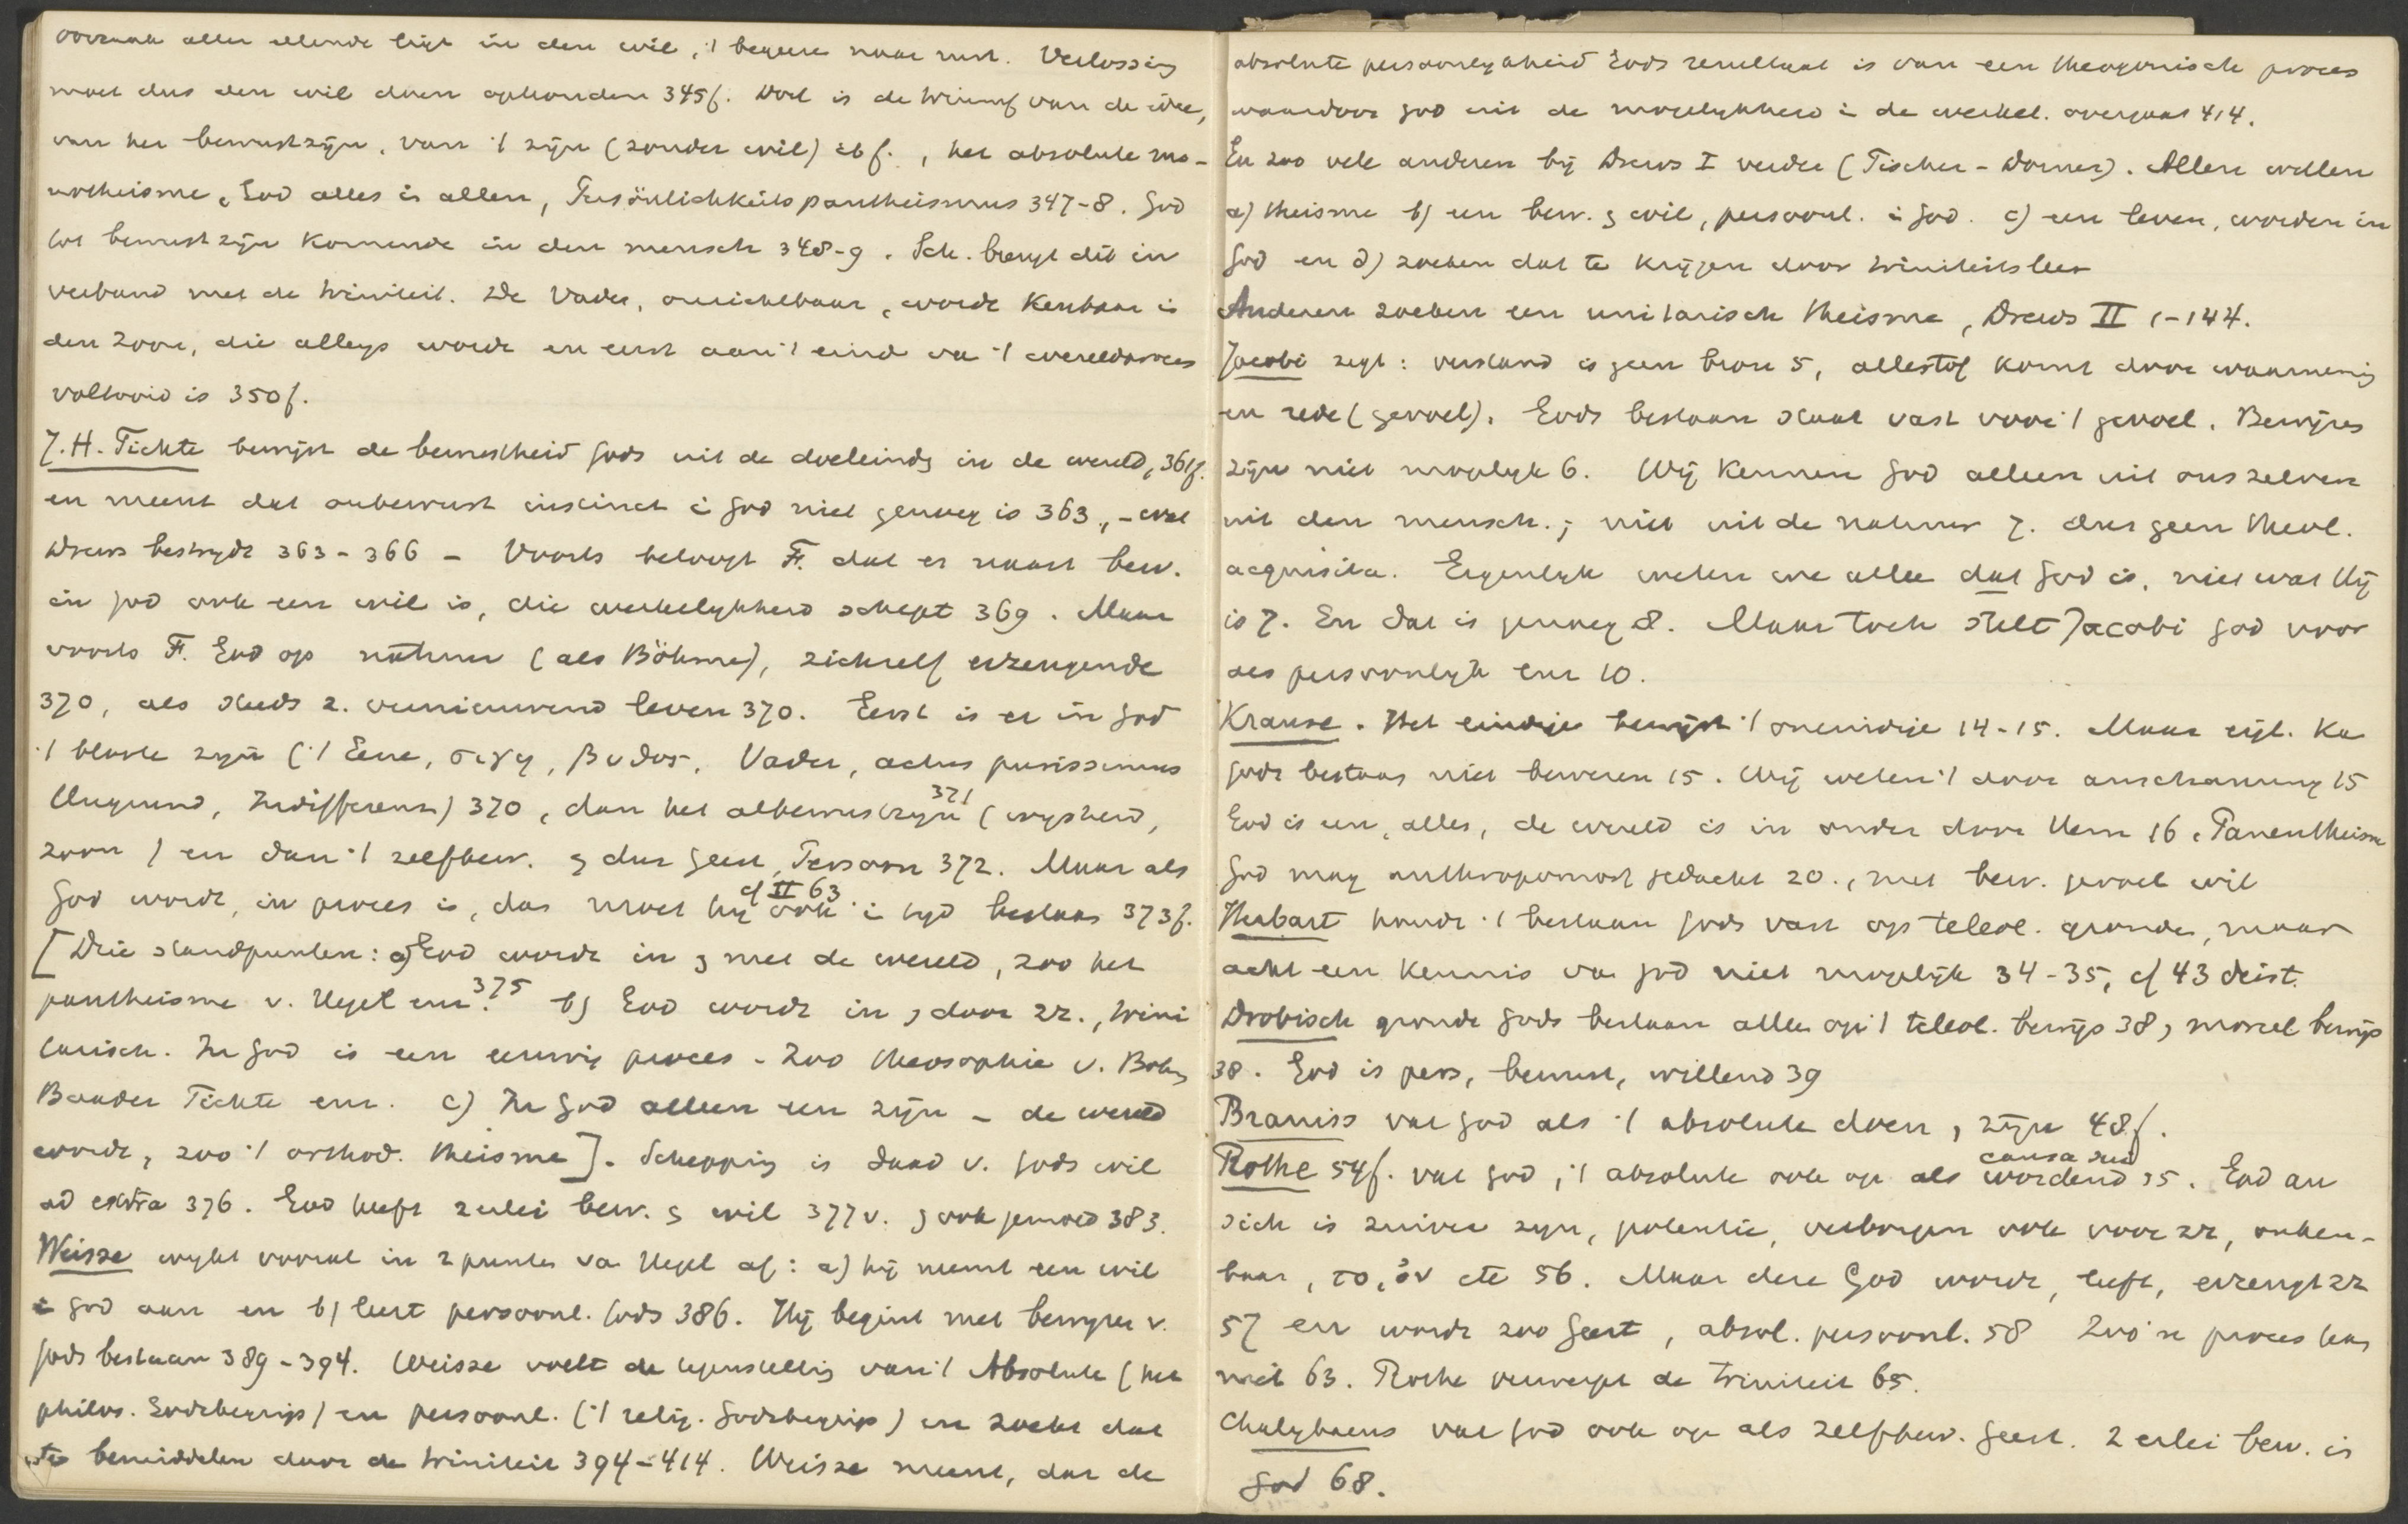 oorzaak aller ellende ligt in den wil, 't begeeren naar rust. Verlossing
moet dus den wil doen ophouden 345f. Doel is de triumf van de idee,
van het bewustzijn, van 't zijn (zonder wil) ib f., het absolute mo-
notheisme, God alles in allen, Persönlichkeitspantheismus 347-8. God
tot bewustzijn komende in den mensch 348-9. Sch. brengt dit in
verband met de triniteit. De Vader, onzichtbaar, wordt kenbaar in
den Zoon, die allengs wordt en eerst aan 't eind va 't wereldproces
voltooid is 350f.
J.H. Fichte bewijst de bewustheid Gods uit de doeleindn in de wereld, 361f.
en meent dat onbewust instinct in God niet genoeg is 363, - wat
Drews bestrijdt 363-366 - Voorts betoogt F. dat er naast bew.
in God ook een wil is, die werkelijkheid schept 369. Maar
voorts F. God op natuur (als Böhme), zichzelf erzeugende
370, als steeds z. vernieuwend leven 370. Eerst is er in God
't bloote zijn ('t Eene, σιγη, βυθος, Vader, actus purissimus
Ungrund, Indifferenz) 370, dan het albewustzijn 371 (wijsheid,
zoon) en dan 't zelfbew. en dus geest, Persoon 372. Maar als
God wordt, in proces is, dan moet hij ook in tijd bestaan 373f. cf II 63
[Drie standpunten: a) God wordt in en met de wereld, zoo het
pantheisme v. Hegel enz. 375 b) God wordt in en door zz., trini
tarisch. In God is een eeuwig proces - Zoo theosophie v. Bohm
Baader Fichte enz. c) In God alleen een zijn - de wereld
wordt, zoo 't orthod. theisme]. Schepping is daad v. Gods wil
ad extra 376. God heeft 2erlei bew. en wil 377v. en ook gemoed 383.
Weisse wijkt vooral in 2 punten va Hegel af: a) hij neemt een wil
in God aan en b) leert persoonl. Gods 386. Hij begint met bewijzen v.
Gods bestaan 389-394. Weisse voelt de tegenstelling van 't Absolute (het
philos. Godsbegrip) en persoonl. ('t relig. Godsbegrip) en zoekt dat
te bemiddelen door de triniteit 394-414. Weisse meent, dat de
absolute persoonlijkheid Gods resultaat is van een theogonisch proces
waardoor God uit de mogelijkheid in de werkel. overgaat 414.
En zoo vele anderen bij Drews I verder (Fischer - Dorner). Allen willen
a) theisme b) een bew. en wil, persoonl. in God. c) een leven, worden in
God en d) zoeken dat te krijgen door triniteitsleer
Anderen zoeken een unitarisch theisme, Drews II 1-144.
Jacobi zegt: verstand is geen bron 5, alle stof komt door waarneming
en rede (gevoel). Gods bestaan staat vast voor 't gevoel. Bewijzen
zijn niet mogelijk 6. Wij kennen God alleen uit ons zelven
uit den mensch.; niet uit de natuur 7. dus geen theol.
acquisita. Eigenlijk weten we alleen dat God is, niet wat Hij
is 7. En dat is genoeg 8. Maar toch stelt Jacobi God voor
als persoonlijk enz 10.
Krause. Het eindige bewijst 't oneindige 14-15. Maar eigl. kan
Gods bestaan niet bewezen 15. Wij weten 't door anschauung 15
God is een, alles, de wereld is in onder door Hem 16. Panentheisme
God mag anthropomorf gedacht 20., met bew. gevoel wil
Herbart houdt 't bestaan Gods vast op teleol. gronden, maar
acht een kennis van God niet mogelijk 34-35, cf 43 deist.
Drobisch grondt Gods bestaan alleen op 't teleol. bewijs 38, moreel bewijs
38. God is pers, bewust, willend 39
Braniss vat God als 't absolute doen, zijn 48f.
Rothe 54f. vat God, 't absolute ook op als wordend causa sui 55. God an
sich is zuiver zijn, potentie, verborgen ook voor zz, onken-
baar, το ὄν etc 56. Maar deze God wordt, leeft, erzeugt zz
57 en wordt zoo geest, absol. persoonl. 58 Zoo'n proces kan
niet 63. Rothe verwerpt de triniteit 65.
Chalybaeus vat God ook op als zelfbew. geest. 2 erlei bew. in
God 68.